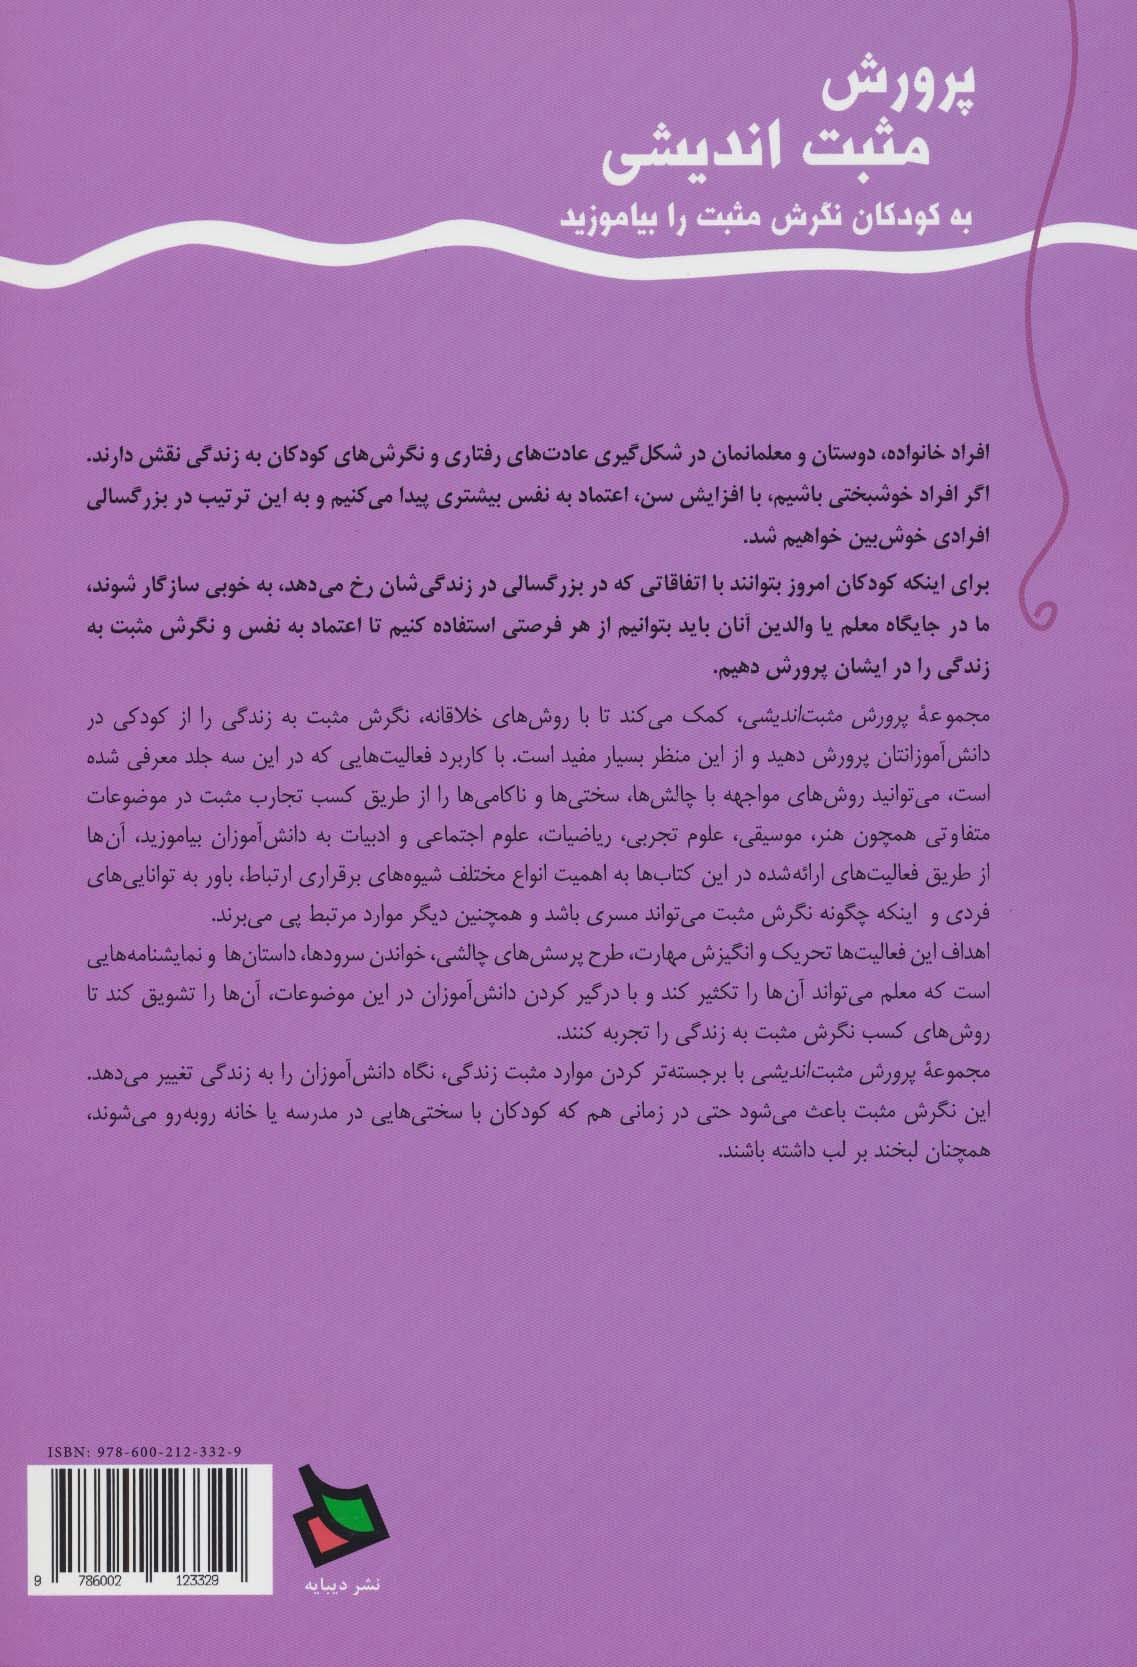 پرورش
مثبت اندیشی
به کودکان نگرش مثبت را بیاموزید
افراد خانواده، دوستان و معلمانمان در شکل‌گیری عادت‌های رفتاری و نگرش‌های کودکان به زندگی نقش دارند.
اگر افراد خوشبختی باشیم، با افزایش سن، اعتماد به نفس بیشتری پیدا می‌کنیم و به این ترتیب در بزرگسالی
افرادی خوش‌بین خواهیم شد.
برای اینکه کودکان امروز بتوانند با اتفاقاتی که در بزرگسالی در زندگی‌شان رخ می‌دهد، به خوبی سازگار شوند،
ما در جایگاه معلم یا والدین آنان باید بتوانیم از هر فرصتی استفاده کنیم تا اعتماد به نفس و نگرش مثبت به
زندگی را در ایشان پرورش دهیم.
مجموعهٔ پرورش مثبت‌اندیشی، کمک می‌کند تا با روش‌های خلاقانه، نگرش مثبت به زندگی را از کودکی در
دانش‌آموزانتان پرورش دهید و از این منظر بسیار مفید است. با کاربرد فعالیت‌هایی که در این سه جلد معرفی شده
است، می‌توانید روش‌های مواجهه با چالش‌ها، سختی‌ها و ناکامی‌ها را از طریق کسب تجارب مثبت در موضوعات
متفاوتی همچون هنر، موسیقی، علوم تجربی، ریاضیات، علوم اجتماعی و ادبیات به دانش‌آموزان بیاموزید، آن‌ها
از طریق فعالیت‌های ارائه‌شده در این کتاب‌ها به اهمیت انواع مختلف شیوه‌های برقراری ارتباط، باور به توانایی‌های
فردی و اینکه چگونه نگرش مثبت می‌تواند مسری باشد و همچنین دیگر موارد مرتبط پی می‌برند.
اهداف این فعالیت‌ها تحریک و انگیزش مهارت، طرح پرسش‌های چالشی، خواندن سرودها، داستان‌ها و نمایشنامه‌هایی
است که معلم می‌تواند آن‌ها را تکثیر کند و با درگیر کردن دانش‌آموزان در این موضوعات، آن‌ها را تشویق کند تا
روش‌های کسب نگرش مثبت به زندگی را تجربه کنند.
مجموعهٔ پرورش مثبت‌اندیشی با برجسته‌تر کردن موارد مثبت زندگی، نگاه دانش‌آموزان را به زندگی تغییر می‌دهد.
این نگرش مثبت باعث می‌شود حتی در زمانی هم که کودکان با سختی‌هایی در مدرسه یا خانه روبه‌رو می‌شوند،
همچنان لبخند بر لب داشته باشند.
ISBN: 978-600-212-332-9
9 786002 123329
نشر دیبایه